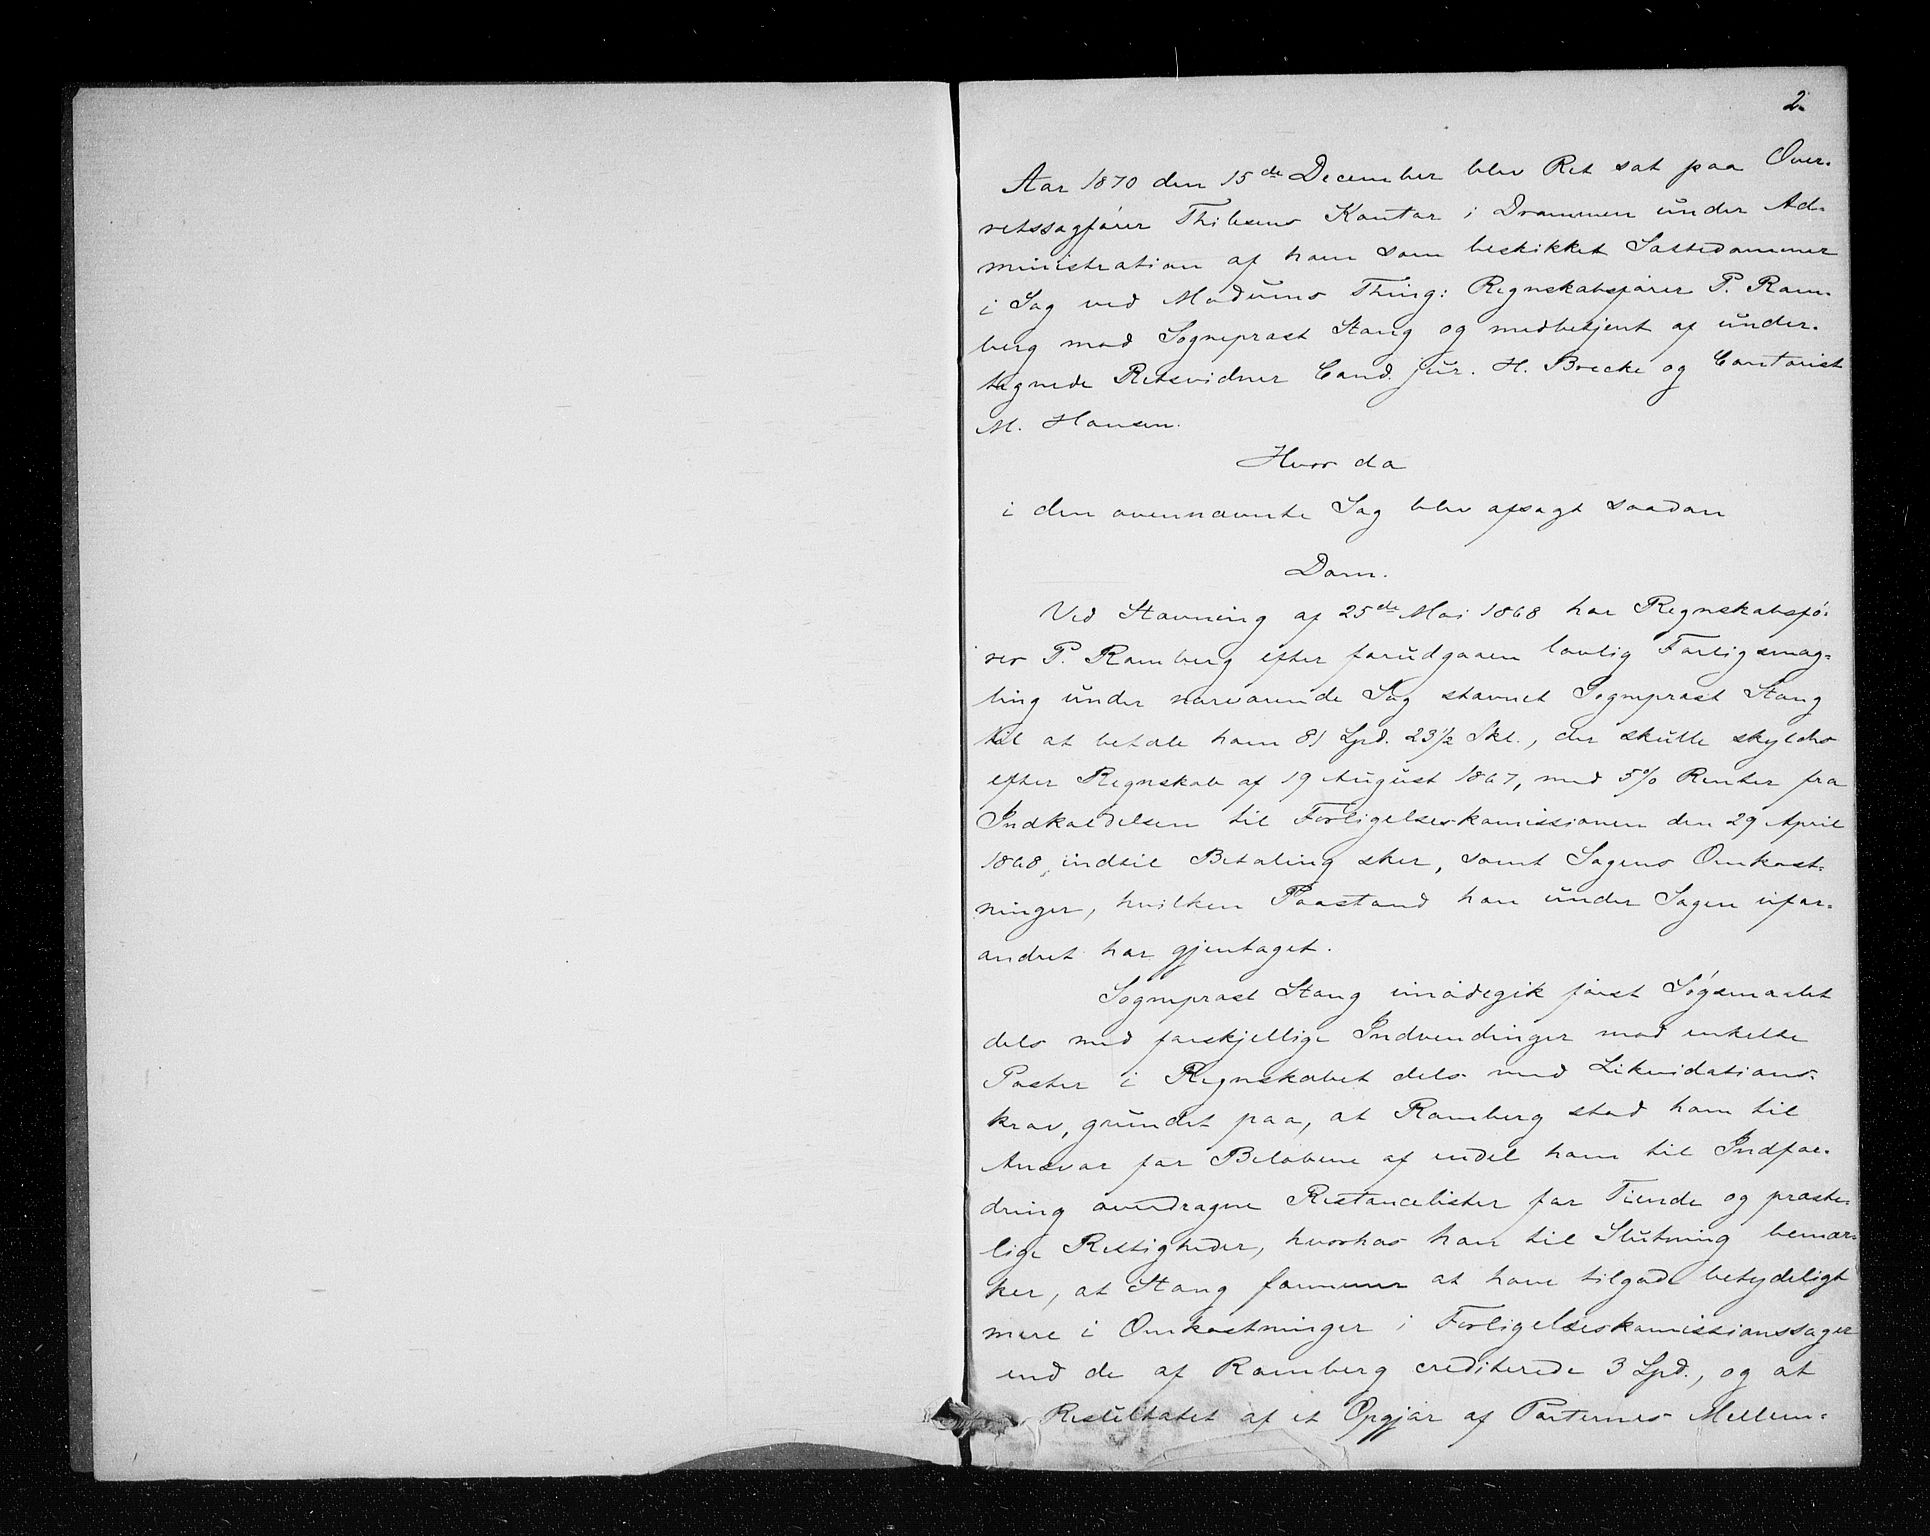 2.
Aar 1870 den 15de December blev Ret sat paa Over-
retssagfører Thilesens Kontor i Drammen under Ad-
ministration af ham som beskikket Sættedommer
i Sag ved Modums Thing: Regnskabsfører P. Ram-
berg mod Sognepræst Stang og medbetjent af under-
tegnede Retsvidner Cand. jur. H. Brecke og Contorist
M. Hansen.
Hvor da
i den ovennævnte Sag blev afsagt saadan
Dom.
Ved Stævning af 25de Mai 1868 har Regnskabsfø-
rer P. Ramberg efter forudgaaen lovlig Forligsmæg-
ling under nærværende Sag stævnet Sognepræst Stang
til at betale ham 81 Spd. 23½ Skl., der skulle skyldes
efter Regnskab af 19 August 1867, med 5% Renter fra
Indkaldelsen til Forligelseskomissionen den 29 April
1868, indtil Betaling sker, samt Sagens Omkost-
ninger, hvilken Paastand han under Sagen ufor-
andret har gjentaget.
Sognepræst Stang imødegik først Søgsmaalet
dels med forskjellige Indvendinger mod enkelte
Poster i Regnskabet dels med Likvidations-
krav, grundet paa, at Ramberg stod ham til
Ansvar for Beløbene af endel ham til Indfor-
dring overdragne Restancelister for Tiende og præste-
lige Rettigheder, hvorhos han til Slutning bemær-
ker, at Stang formener at have tilgode betydeligt
mere i Omkostninger i Forligelseskomissionssager
end de af Ramberg crediterede 3 Spd., og at
Resultatet af et Opgjør af Parternes Mellem-